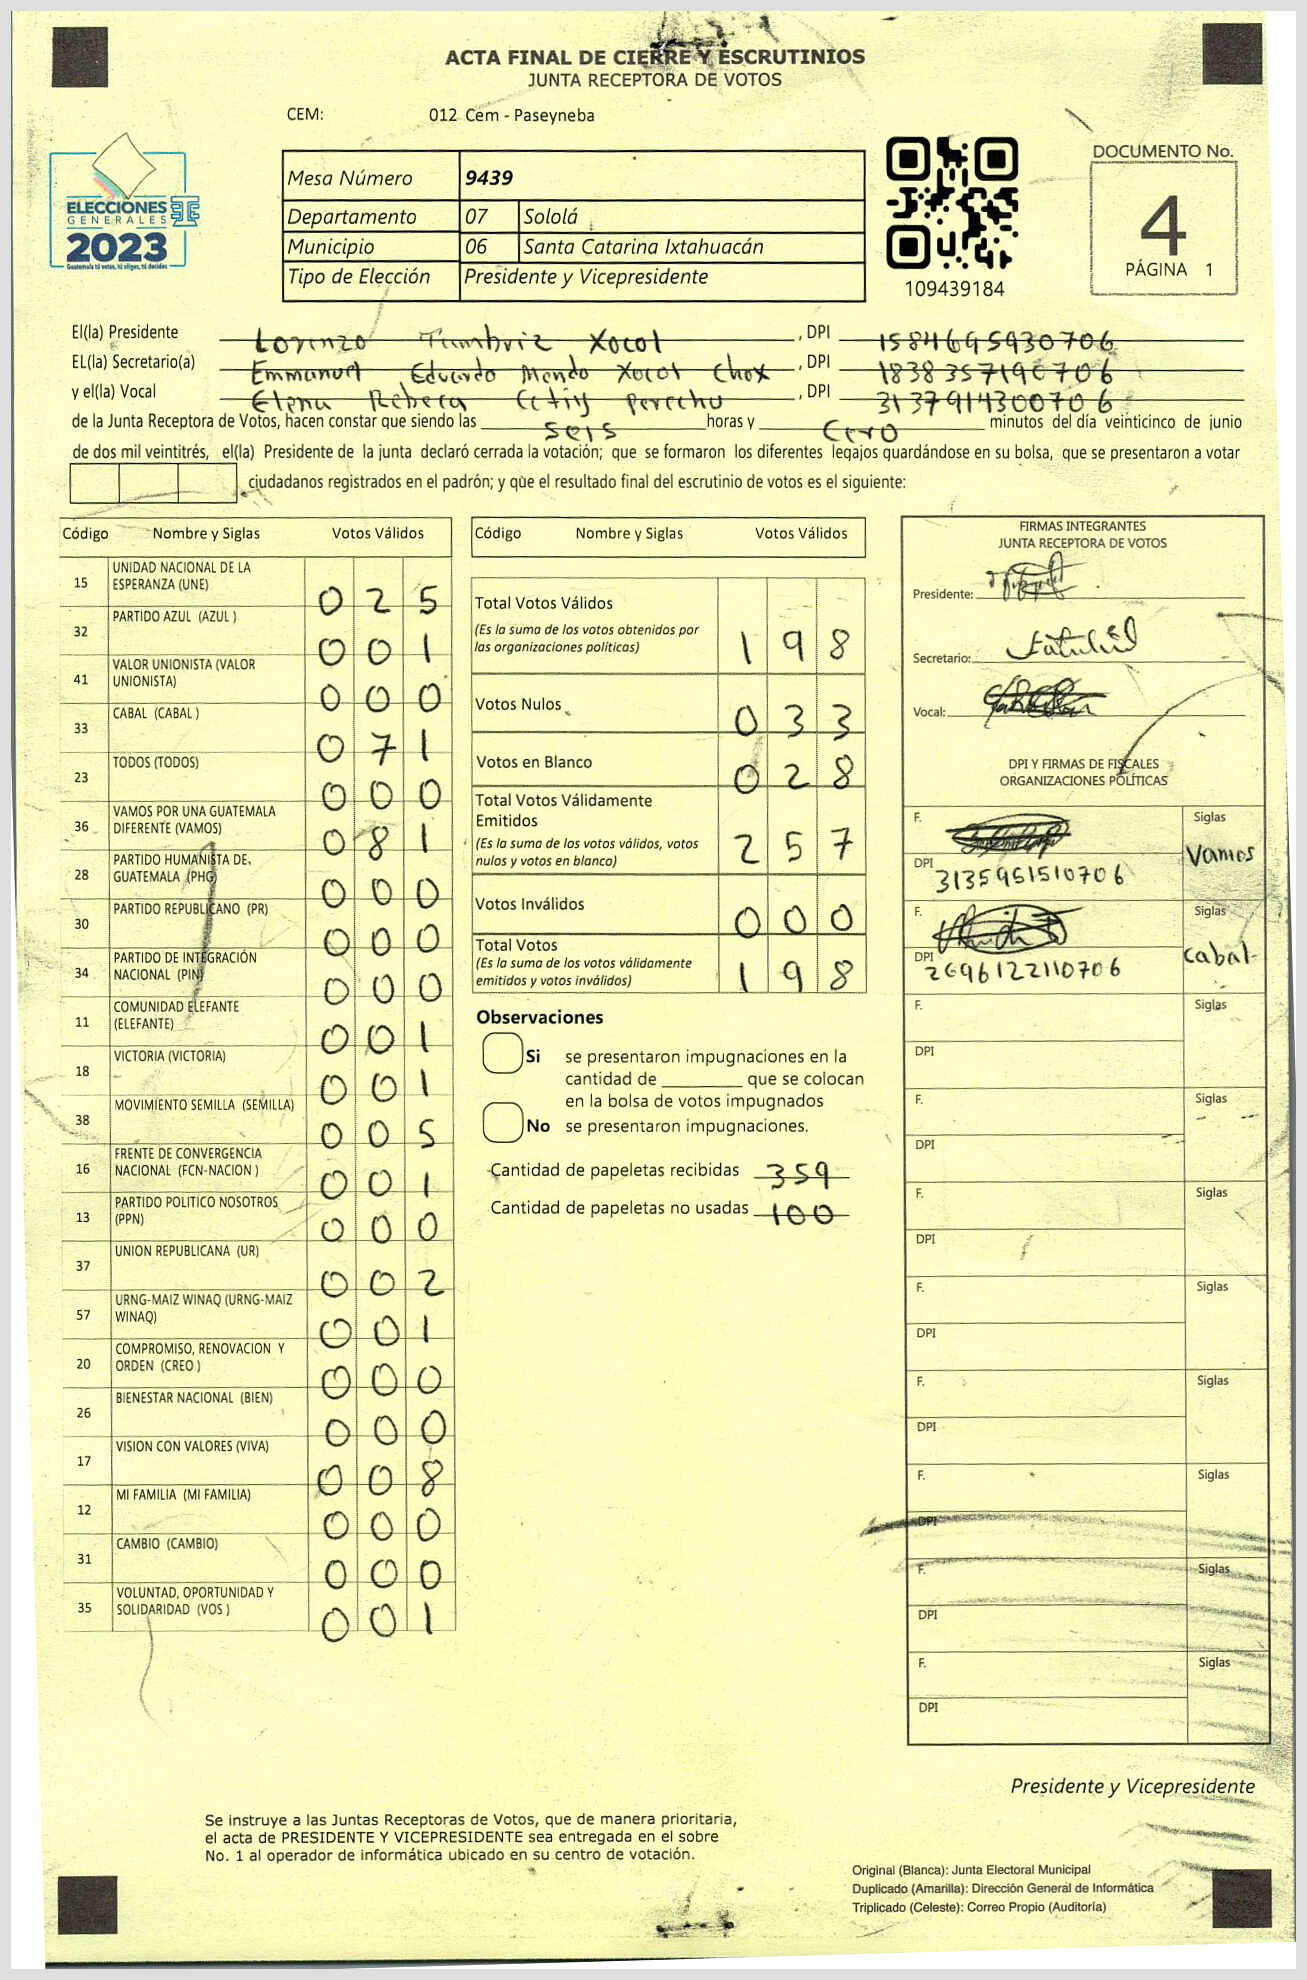 ACTA FINAL DE CIERRE Y ESCRUTINIOS
JUNTA RECEPTORA DE VOTOS
CEM: 012 Cem - Paseyneba
ELECCIONES
GENERALES
2023
Guatemala tú votas, tú eliges, tú decides
Mesa Número 9439
Departamento 07 Sololá
Municipio 06 Santa Catarina Ixtahuacán
Tipo de Elección Presidente y Vicepresidente
109439184
DOCUMENTO No.
4
PÁGINA 1
El(la) Presidente Lorenzo Tambriz Xocol , DPI 1584695930706
EL(la) Secretario(a) Emmanuel Eduardo Xocol Chox , DPI 1838357190706
y el(la) Vocal Elena Rebeca , DPI 3137914300706
de la Junta Receptora de Votos, hacen constar que siendo las seis horas y cero minutos del día veinticinco de junio
de dos mil veintitrés, el(la) Presidente de la junta declaró cerrada la votación; que se formaron los diferentes legajos guardándose en su bolsa, que se presentaron a votar
ciudadanos registrados en el padrón; y que el resultado final del escrutinio de votos es el siguiente:
Código Nombre y Siglas Votos Válidos
15 UNIDAD NACIONAL DE LA ESPERANZA (UNE) 0 2 5
32 PARTIDO AZUL (AZUL ) 0 0 1
41 VALOR UNIONISTA (VALOR UNIONISTA) 0 0 0
33 CABAL (CABAL ) 0 7 1
23 TODOS (TODOS) 0 0 0
36 VAMOS POR UNA GUATEMALA DIFERENTE (VAMOS) 0 8 1
28 PARTIDO HUMANISTA DE GUATEMALA (PHG) 0 0 0
30 PARTIDO REPUBLICANO (PR) 0 0 0
34 PARTIDO DE INTEGRACIÓN NACIONAL (PIN) 0 0 0
11 COMUNIDAD ELEFANTE (ELEFANTE) 0 0 1
18 VICTORIA (VICTORIA) 0 0 1
38 MOVIMIENTO SEMILLA (SEMILLA) 0 0 5
16 FRENTE DE CONVERGENCIA NACIONAL (FCN-NACION ) 0 0 1
13 PARTIDO POLITICO NOSOTROS (PPN) 0 0 0
37 UNION REPUBLICANA (UR) 0 0 2
57 URNG-MAIZ WINAQ (URNG-MAIZ WINAQ) 0 0 1
20 COMPROMISO, RENOVACION Y ORDEN (CREO ) 0 0 0
26 BIENESTAR NACIONAL (BIEN) 0 0 0
17 VISION CON VALORES (VIVA) 0 0 8
12 MI FAMILIA (MI FAMILIA) 0 0 0
31 CAMBIO (CAMBIO) 0 0 0
35 VOLUNTAD, OPORTUNIDAD Y SOLIDARIDAD (VOS ) 0 0 1
Código Nombre y Siglas Votos Válidos
Total Votos Válidos 1 9 8
(Es la suma de los votos obtenidos por
las organizaciones políticas)
Votos Nulos 0 3 3
Votos en Blanco 0 2 8
Total Votos Válidamente
Emitidos 2 5 7
(Es la suma de los votos válidos, votos
nulos y votos en blanco)
Votos Inválidos 0 0 0
Total Votos 1 9 8
(Es la suma de los votos válidamente
emitidos y votos inválidos)
Observaciones
Si se presentaron impugnaciones en la
cantidad de ________ que se colocan
en la bolsa de votos impugnados
No se presentaron impugnaciones.
Cantidad de papeletas recibidas 359
Cantidad de papeletas no usadas 100
FIRMAS INTEGRANTES
JUNTA RECEPTORA DE VOTOS
Presidente:
Secretario:
Vocal:
DPI Y FIRMAS DE FISCALES
ORGANIZACIONES POLÍTICAS
F. Siglas
Vamos
DPI 3135951510706
F. Siglas
cabal
DPI 2696122110706
F. Siglas
DPI
F. Siglas
DPI
F. Siglas
DPI
F. Siglas
DPI
F. Siglas
DPI
F. Siglas
DPI
F. Siglas
DPI
F. Siglas
DPI
Presidente y Vicepresidente
Se instruye a las Juntas Receptoras de Votos, que de manera prioritaria,
el acta de PRESIDENTE Y VICEPRESIDENTE sea entregada en el sobre
No. 1 al operador de informática ubicado en su centro de votación.
Original (Blanca): Junta Electoral Municipal
Duplicado (Amarilla): Dirección General de Informática
Triplicado (Celeste): Correo Propio (Auditoría)